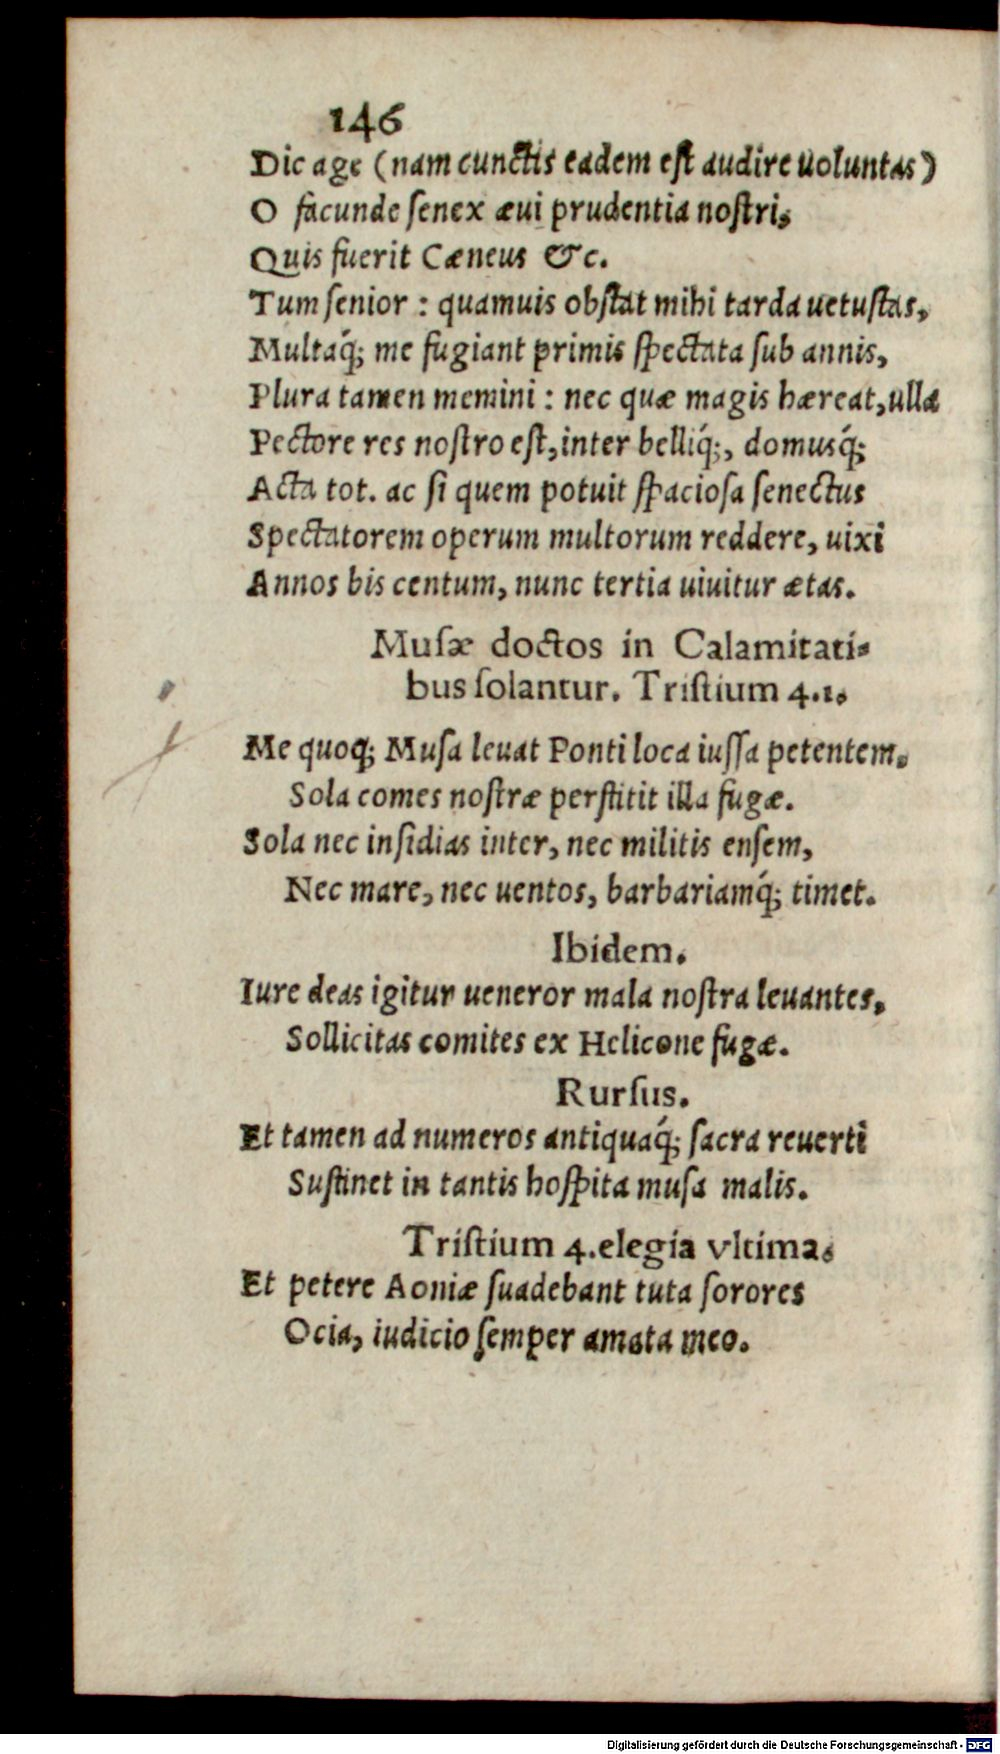 146
Dic age (nam cunctis eadem est audire uoluntas)
O facunde senex æui prudentia nostri,
Quis fuerit Cæneus &c.
Tum senior : quamuis obstat mihi tarda uetustas,
Multaq́; me fugiant primis spectata sub annis,
Plura tamen memini : nec quæ magis hæreat, ulla
Pectore res nostro est, inter belliq́;, domusq́;
Acta tot. ac si quem potuit spaciosa senectus
Spectatorem operum multorum reddere, uixi
Annos bis centum, nunc tertia uiuitur ætas.
Musæ doctos in Calamitati-
bus solantur. Tristium 4.1.
Me quoq; Musa leuat Ponti loca iussa petentem.
Sola comes nostræ perstitit illa fugæ.
Sola nec insidias inter, nec militis ensem,
Nec mare, nec uentos, barbariamq́; timet.
Ibidem.
Iure deas igitur ueneror mala nostra leuantes,
Sollicitas comites ex Helicone fugæ.
Rursus.
Et tamen ad numeros antiquaq́; sacra reuerti
Sustinet in tantis hospita musa malis.
Tristium 4. elegia vltima.
Et petere Aoniæ suadebant tuta sorores
Ocia, iudicio semper amata meo.
Digitalisierung gefördert durch die Deutsche Forschungsgemeinschaft - DFG